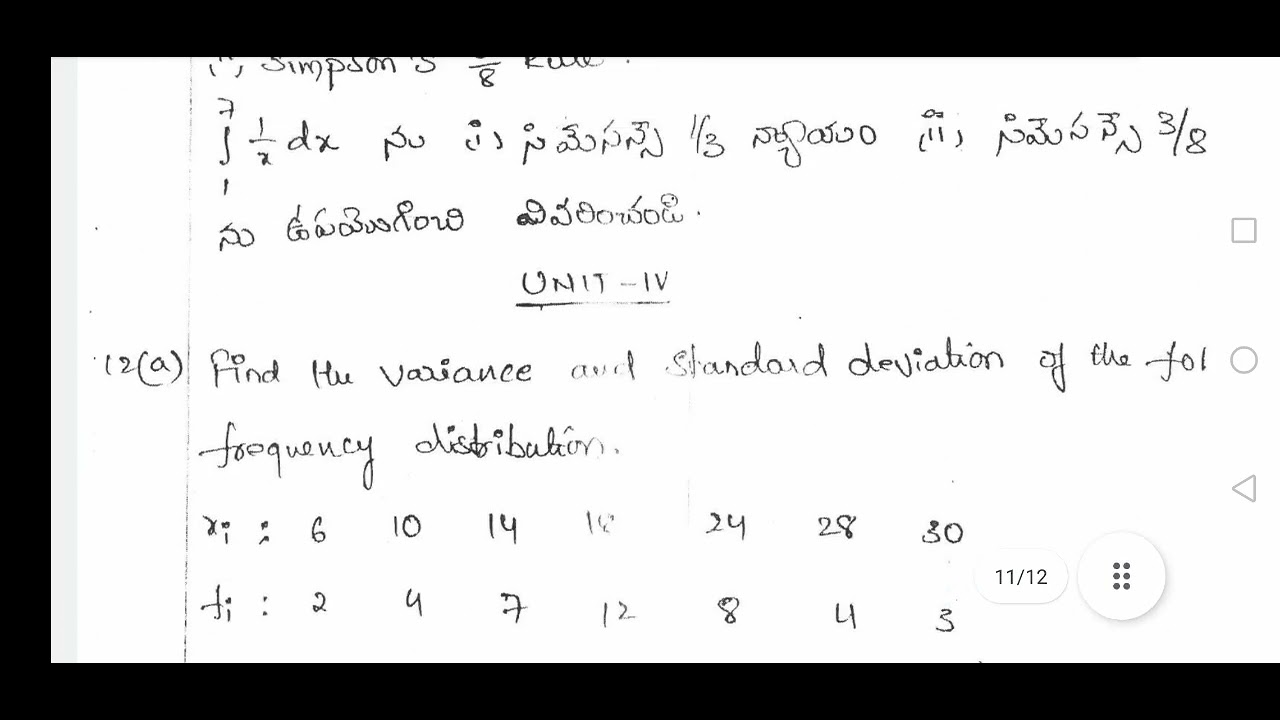 ii, Simpson's 3/8 Rule.
7
∫ 1/x dx ను (i) సిమెసన్సె 1/3 న్యాయం (ii) సిమెసన్సె 3/8
1
ను ఉపయొగించి వివరించండి.
UNIT - IV
12(a) Find the variance and standard deviation of the fol
frequency distribution.
xi : 6 10 14 18 24 28 30
11/12
fi : 2 4 7 12 8 4 3